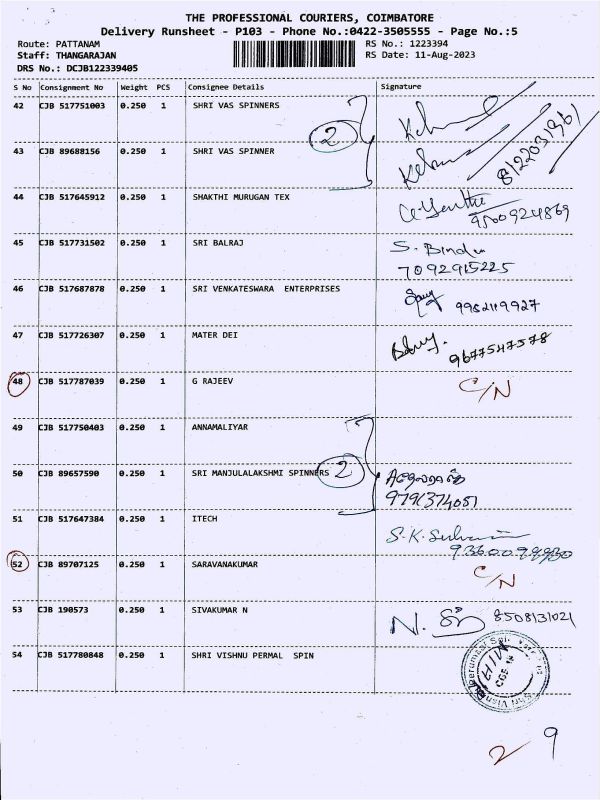 THE PROFESSIONAL COURIERS, COIMBATORE
Delivery Runsheet - P103 - Phone No.:0422-3505555 - Page No.:5
Route: PATTANAM RS No.: 1223394
Staff: THANGARAJAN RS Date: 11-Aug-2023
DRS No.: DCJB122339405
S No Consignment No Weight PCS Consignee Details Signature
42 CJB 517751003 0.250 1 SHRI VAS SPINNERS
2
8122031961
43 CJB 89688156 0.250 1 SHRI VAS SPINNER
44 CJB 517645912 0.250 1 SHAKTHI MURUGAN TEX
9500924869
45 CJB 517731502 0.250 1 SRI BALRAJ S. Bindu
7092915225
46 CJB 517687878 0.250 1 SRI VENKATESWARA ENTERPRISES
9952119927
47 CJB 517726307 0.250 1 MATER DEI
9677547578
48 CJB 517787039 0.250 1 G RAJEEV C/N
49 CJB 517750403 0.250 1 ANNAMALIYAR
50 CJB 89657590 0.250 1 SRI MANJULALAKSHMI SPINNERS 2
9791374051
51 CJB 517647384 0.250 1 ITECH S.K.
52 CJB 89707125 0.250 1 SARAVANAKUMAR C/N
53 CJB 190573 0.250 1 SIVAKUMAR N N. 8508131021
54 CJB 517780848 0.250 1 SHRI VISHNU PERMAL SPIN
2 9